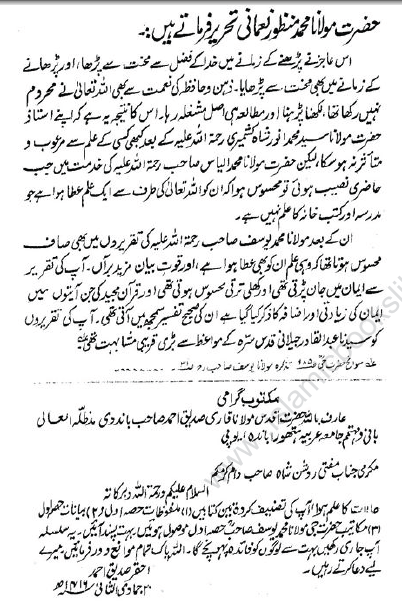 حضرت مولانا محمد منظور نعمانی تحریر فرماتے ہیں :۔
اس عاجز نے پڑھنے کے زمانے میں خدا کے فضل سے محنت سے پڑھا، اور پڑھانے
کے زمانہ میں بھی محنت سے پڑھایا۔ ذہن و حافظہ کی نعمت سے بھی اللہ تعالیٰ نے محروم
نہیں رکھا تھا، لکھنا پڑھنا اور مطالعہ ہی اصل مشغلہ رہا۔ اس کا نتیجہ یہ ہے کہ اپنے استاذ
حضرت مولانا سید محمد انور شاہ کشمیری رحمۃ اللہ علیہ کے بعد کبھی کسی کے علم سے مرعوب و
متأثر نہ ہو سکا، لیکن حضرت مولانا محمد الیاس صاحب رحمۃ اللہ علیہ کی خدمت میں جب
حاضری نصیب ہوئی تو محسوس ہوا کہ ان کو اللہ تعالیٰ کی طرف سے ایک علم عطا ہوا ہے جو
مدرسہ اور کتب خانہ کا علم نہیں ہے۔
ان کے بعد مولانا محمد یوسف صاحب رحمۃ اللہ علیہ کی تقریروں میں بھی صاف
محسوس ہوتا تھا کہ وہی علم ان کو بھی عطا ہوا ہے، اور قوت بیان مزید برآں۔ آپ کی تقریر
سے ایمان میں جان پڑتی تھی اور کھلی ترقی محسوس ہوتی تھی اور قرآن مجید کی جن آیتوں میں
ایمان کی زیادتی اور اضافہ کا ذکر کیا گیا ہے ان کی صحیح تفسیر سمجھ میں آتی تھی۔ آپ کی تقریروں
کو سیدنا عبدالقادر جیلانی قدس سرہ کے مواعظ سے بڑی قریبی مشابہت تھی
تذکرہ مولانا یوسف صاحب
مکتوب گرامی
عارف باللہ حضرت اقدس مولانا قاری صدیق احمد صاحب باندوی مدظلہ العالی
بانی و مہتمم جامعہ عربیہ ہتھورا باندہ، یوپی
مکرمی جناب مفتی روشن شاہ صاحب دام کرمکم
السلام علیکم ورحمۃ اللہ وبرکاتہ
حالات کا علم ہوا آپ کی تصنیف کردہ تین کتابیں (۱) ملفوظات حصہ اول و ۲) بیانات حصہ اول
(۳) مکاتیب حضرت جی مولانا محمد یوسف صاحب حصہ اول موصول ہوئیں۔ بہت پسند آئیں۔ یہ سلسلہ
آپ جاری رکھیں بہت سے لوگوں کو فائدہ پہنچے گا۔ اللہ پاک تمام موانع دور فرمائیں، میرے
لئے دعا کرتے رہیں۔
احقر صدیق احمد
جمادی الثانی ۱۴۱۶ھ